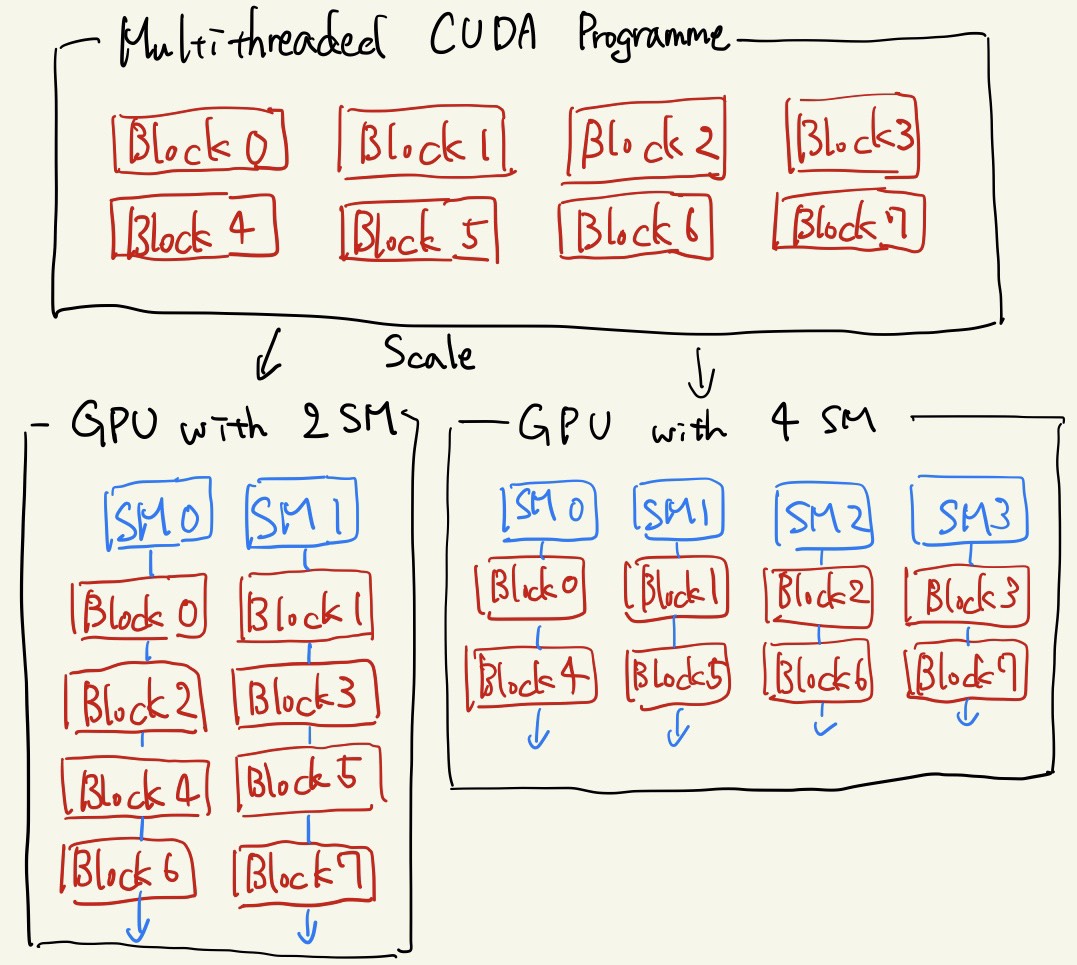 Multithreaded CUDA Programme
Block 0 Block 1 Block 2 Block 3
Block 4 Block 5 Block 6 Block 7
Scale
GPU with 2 SM
SM 0 SM 1
Block 0 Block 1
Block 2 Block 3
Block 4 Block 5
Block 6 Block 7
GPU with 4 SM
SM 0 SM 1 SM 2 SM 3
Block 0 Block 1 Block 2 Block 3
Block 4 Block 5 Block 6 Block 7